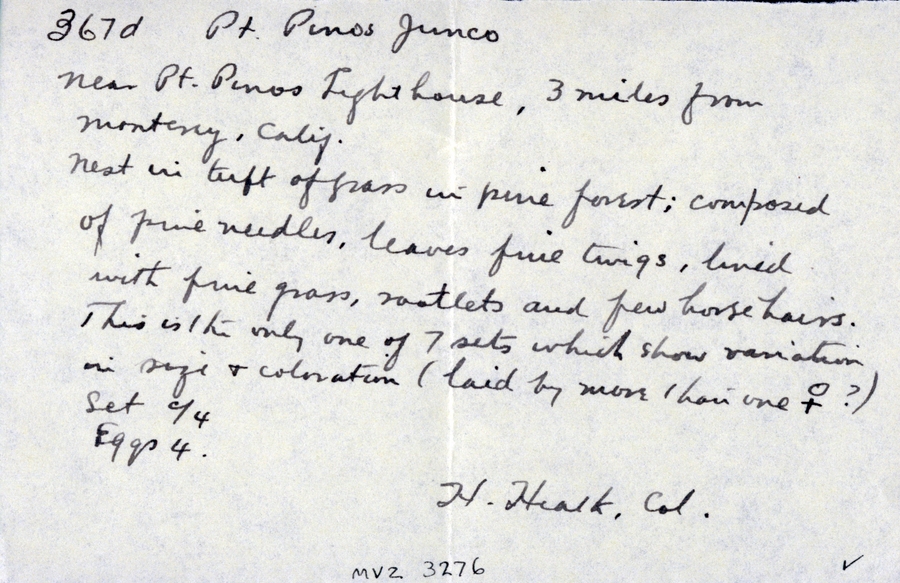 367d Pt. Pinos Junco
near Pt. Pinos Lighthouse, 3 miles from
Monterey, Calif.
Nest in tuft of grass in pine forest; composed
of pine needles, leaves fine twigs, lined
with fine grass, rootlets and few horsehairs.
This is the only one of 7 sets which show variation
in size & coloration (laid by more than one ♀?)
Set c/4
Eggs 4.
H. Heath, Col.
MVZ 3276 ✓